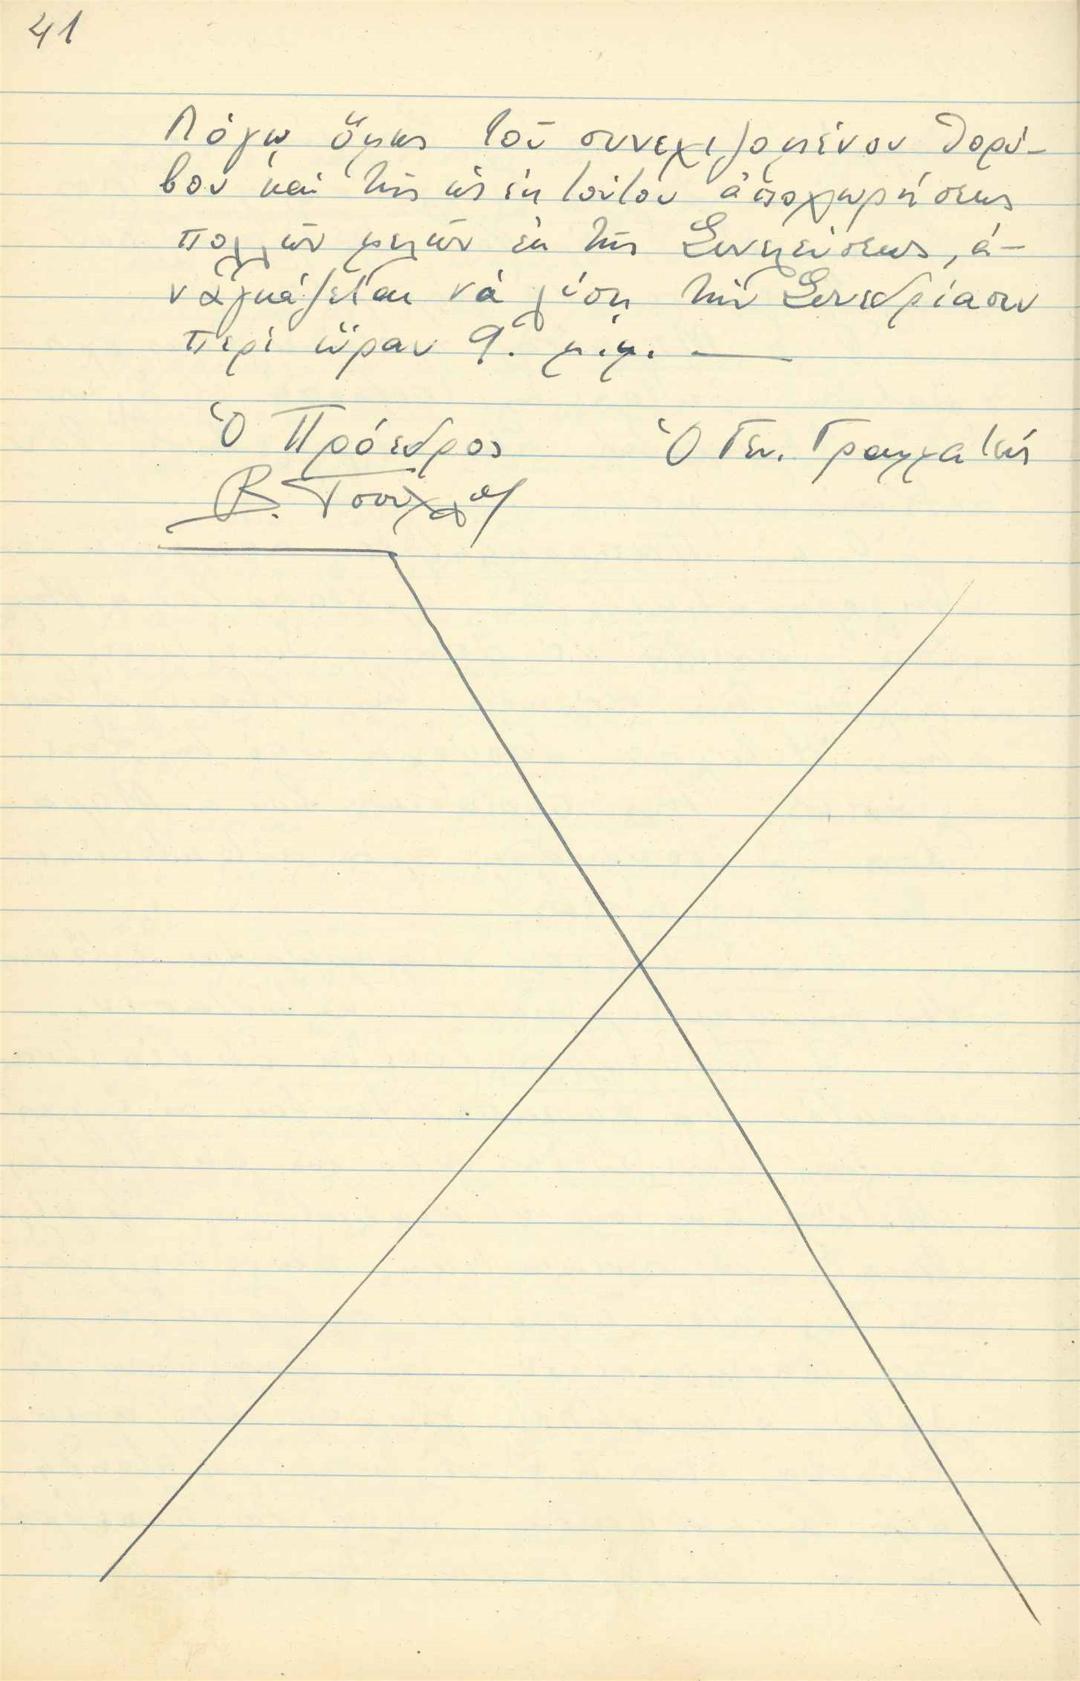 41
Λόγῳ ὅμως τοῦ συνεχιζομένου θορύ-
βου καὶ τῆς ὡς ἐκ τούτου ἀποχωρήσεως
πολλῶν μελῶν ἐκ τῆς Συνελεύσεως, ἀ-
ναγκάζεται νὰ λύσῃ τὴν Συνεδρίασιν
περὶ ὥραν 9. μ.μ. —
Ὁ Πρόεδρος Ὁ Γεν. Γραμματεὺς
Β.